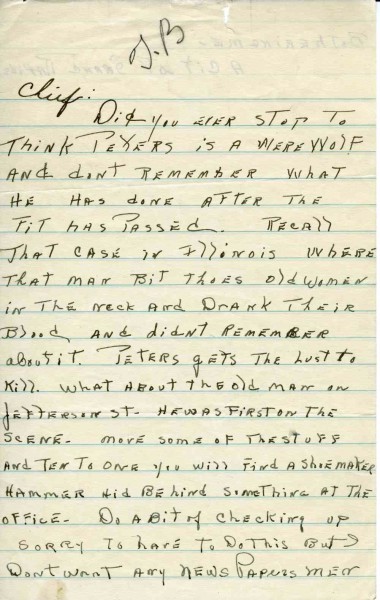 J.B
Chief:
Did you ever stop to
Think Peters is a werewolf
and dont remember what
he has done after the
fit has passed. Recall
that case in Illinois where
that man bit thoes old women
in the neck and drank their
blood and didnt remember
about it. Peters gets the lust to
kill. What about the old man on
Jefferson St. He was first on the
scene. move some of the stuff
and ten to one you will find a shoemaker
hammer hid behind something at the
office. Do a bit of checking up
sorry to have to do this but I
dont want any news papers men